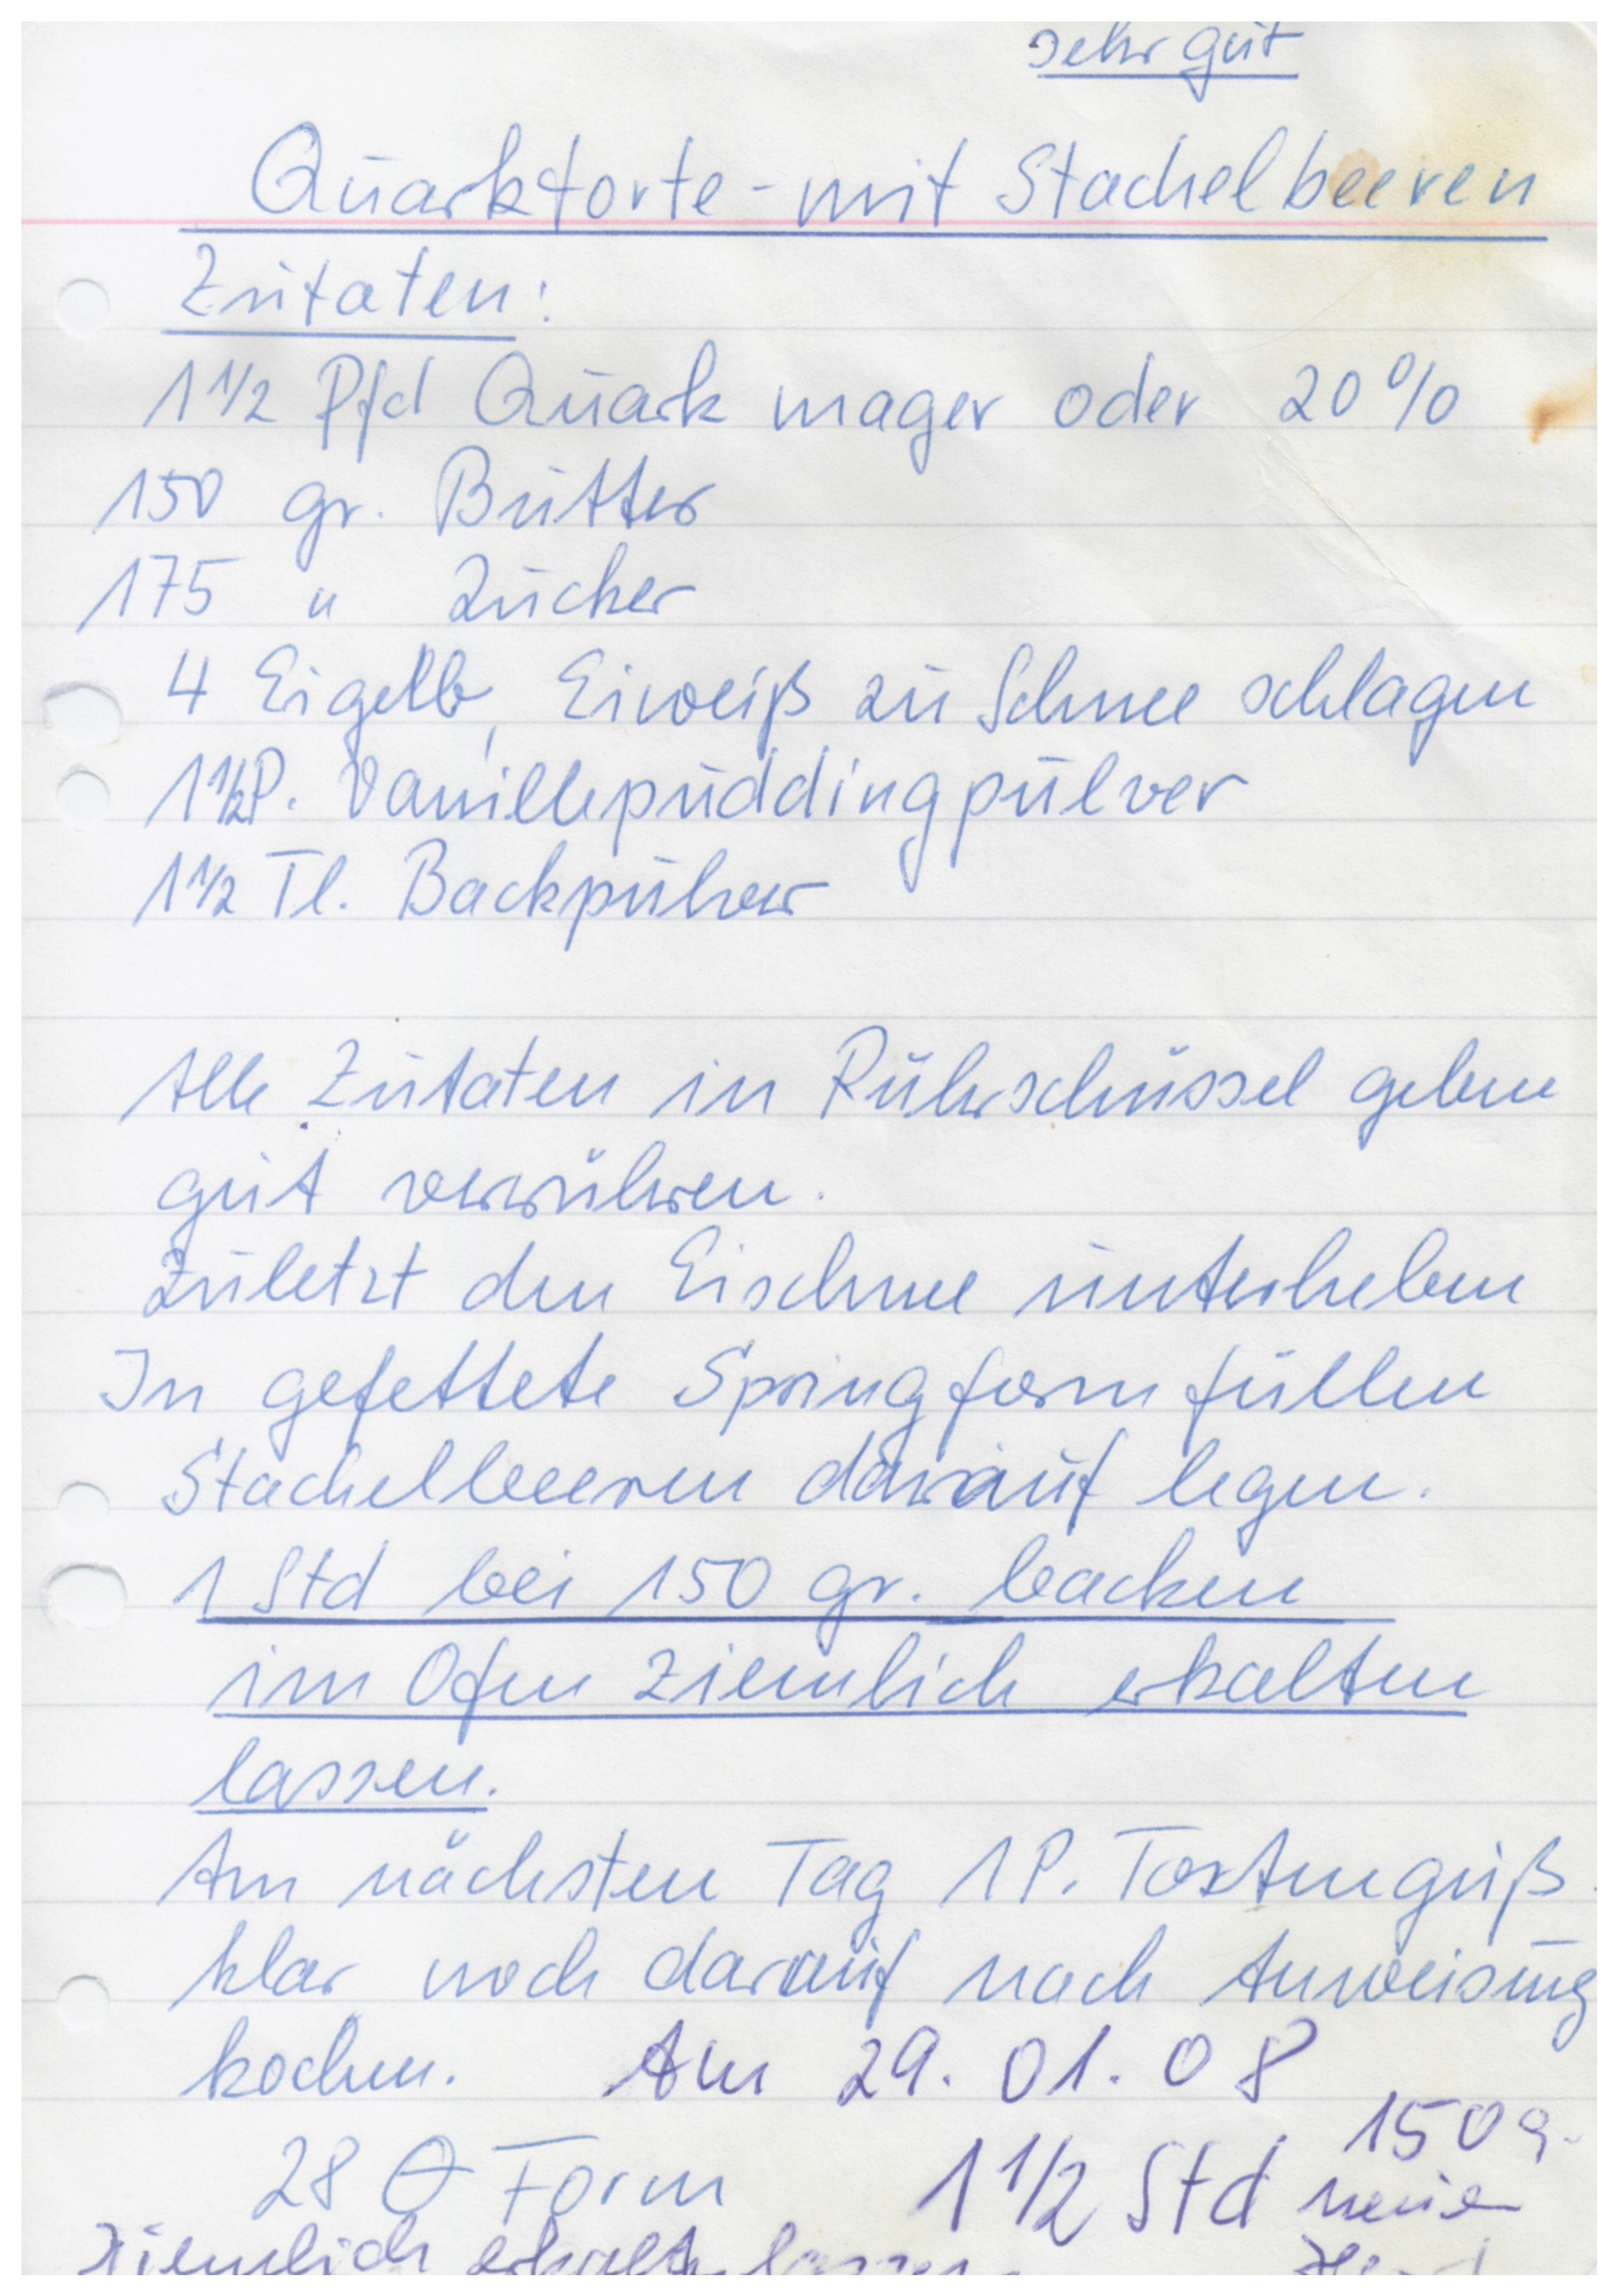 sehr gut
Quarktorte - mit Stachelbeeren
Zutaten:
1 1/2 Pfd Quark mager oder 20 %
150 gr. Butter
175 " Zucker
4 Eigelb, Eiweiß zu Schnee schlagen
1 1/2 P. Vanillepuddingpulver
1 1/2 Tl. Backpulver
Alle Zutaten in Rührschüssel geben
gut verrühren.
Zuletzt den Eischnee unterheben
In gefettete Springform füllen
Stachelbeeren darauf legen.
1 Std bei 150 gr. backen
im Ofen ziemlich erkalten
lassen.
Am nächsten Tag 1 P. Tortenguß
klar noch darauf nach Anweisung
kochen. Am 29.01.08
28 Ø Form 1 1/2 Std 150 g. neuer
ziemlich erkalten lassen Herd